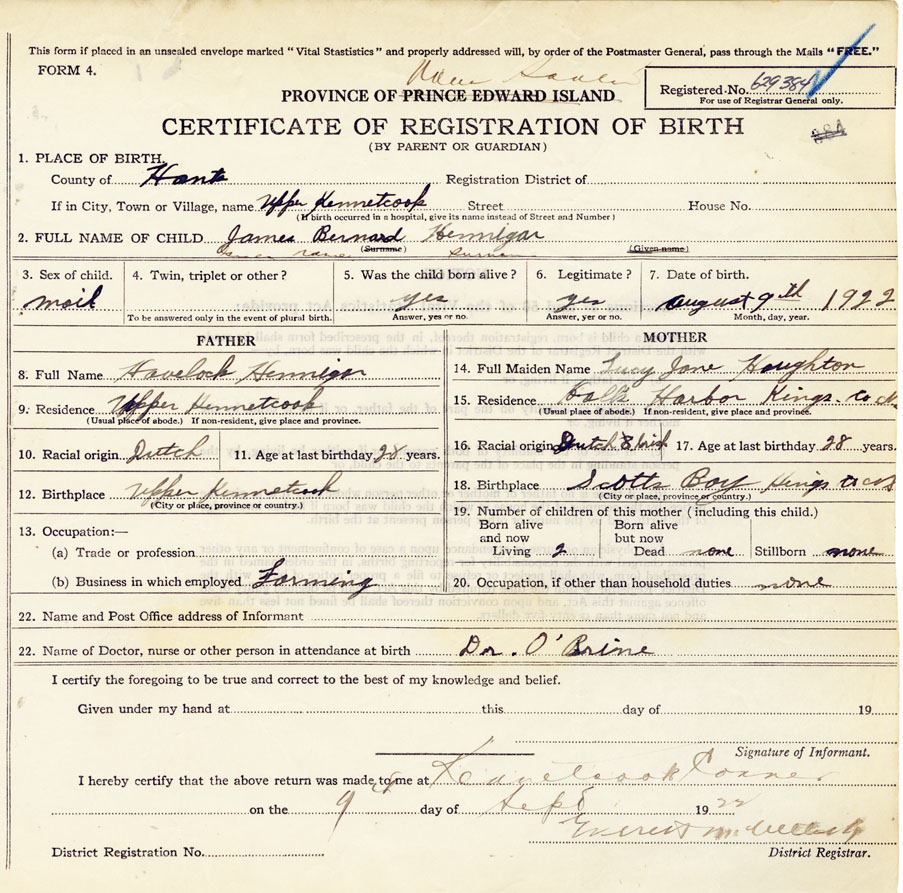 This form if placed in an unsealed envelope marked "Vital Stastistics" and properly addressed will, by order of the Postmaster General, pass through the Mails "FREE."
FORM 4.
Nova Scotia
PROVINCE OF PRINCE EDWARD ISLAND
Registered No. 629384
For use of Registrar General only.
CERTIFICATE OF REGISTRATION OF BIRTH
(BY PARENT OR GUARDIAN)
384
1. PLACE OF BIRTH.
County of Hants Registration District of
If in City, Town or Village, name Upper Kennetcook Street House No.
(If birth occurred in a hospital, give its name instead of Street and Number)
2. FULL NAME OF CHILD James Bernard Hennigar
(Surname) (Given name)
Given name Surname
3. Sex of child. 4. Twin, triplet or other? 5. Was the child born alive? 6. Legitimate? 7. Date of birth.
mail yes yes august 9th 1922
To be answered only in the event of plural birth. Answer, yes or no. Answer, yes or no. Month, day, year.
FATHER
8. Full Name Havelock Hennigar
9. Residence Upper Kennetcook
(Usual place of abode.) If non-resident, give place and province.
10. Racial origin Dutch 11. Age at last birthday 28 years.
12. Birthplace Upper Kennetcook
(City or place, province or country.)
13. Occupation:—
(a) Trade or profession
(b) Business in which employed Farming
MOTHER
14. Full Maiden Name Lucy Jane Houghton
15. Residence Halls Harbor Kings. Co N
(Usual place of abode.) If non-resident, give place and province.
16. Racial origin Dutch & Irish 17. Age at last birthday 28 years.
18. Birthplace Scotts Boy Kings Co NS
(City or place, province or country.)
19. Number of children of this mother (including this child.)
Born alive and now Living 2 Born alive but now Dead none Stillborn none
20. Occupation, if other than household duties none
22. Name and Post Office address of Informant
22. Name of Doctor, nurse or other person in attendance at birth Dr. O'Brine
I certify the foregoing to be true and correct to the best of my knowledge and belief.
Given under my hand at this day of 19
Signature of Informant.
I hereby certify that the above return was made to me at Kennetcook Corner
on the 9th day of Sept 1922
Everett
District Registration No. District Registrar.